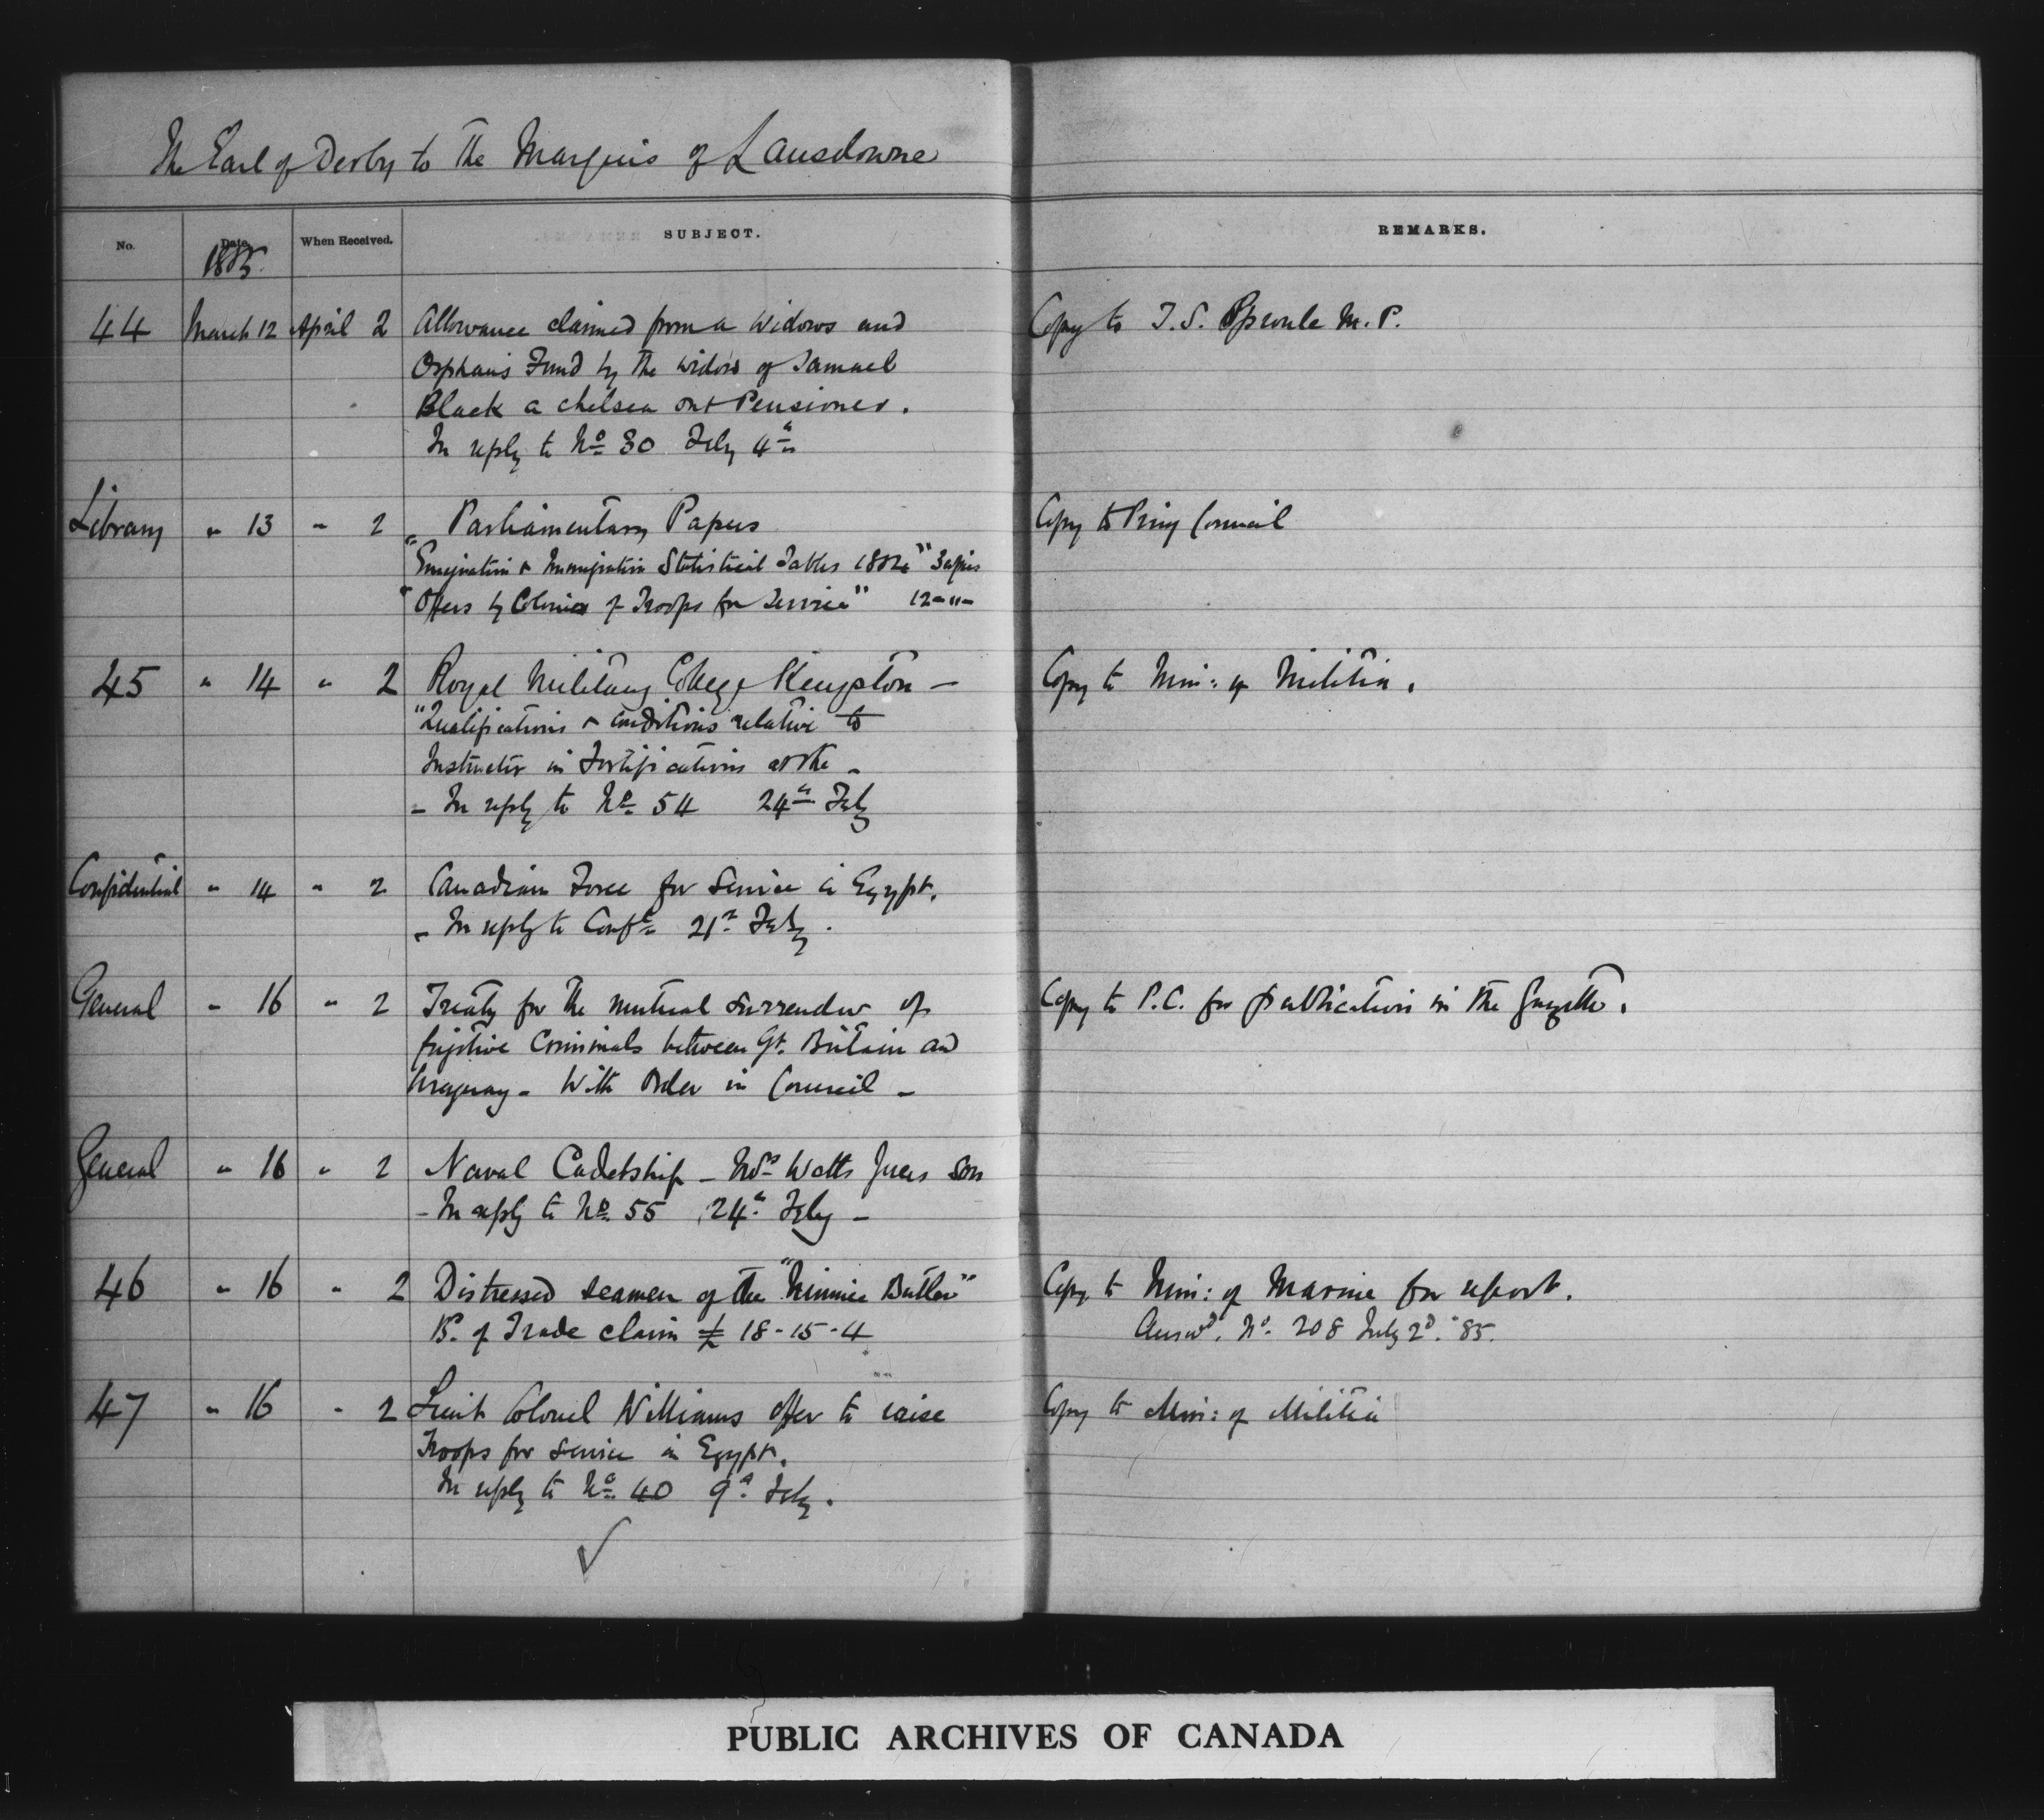 The Earl of Derby to the Marquis of Lansdowne
No. Date When Received. SUBJECT. REMARKS.
1885.
44 March 12 April 2 Allowance claimed from a Widows and Copy to T. S. Sproule M. P.
Orphans Fund by the widow of Samuel
Black a Chelsea out Pensioner.
In reply to No 30 Feby 4th
Library " 13 " 2 Parliamentary Papers Copy to Privy Council
"Emigration & Immigration Statistical Tables 1884" 3 copies
"Offers by Colonies of Troops for Service" 12 - " -
45 " 14 " 2 Royal Military College Kingston - Copy to Min: of Militia.
"Qualifications & conditions relative to
Instructor in Fortifications at the -
- In reply to No 54 24th Feby
Confidential " 14 " 2 Canadian Force for Service in Egypt.
- In reply to Conf 21st Feby.
General " 16 " 2 Treaty for the mutual surrender of Copy to P.C. for publication in the Gazette.
fugitive Criminals between Gt. Britain and
Uruguay - With Order in Council -
General " 16 " 2 Naval Cadetship - Watts son
- In reply to No 55 24th Feby -
46 " 16 " 2 Distressed seamen of the "Minnie Butler" Copy to Min: of Marine for report.
Bd. of Trade claim £ 18-15-4 Answd. No. 208 July 2d. '85.
47 " 16 " 2 Lieut Colonel Williams offer to raise Copy to Min: of Militia
Troops for service in Egypt.
In reply to No 40 9th Feby.
PUBLIC ARCHIVES OF CANADA